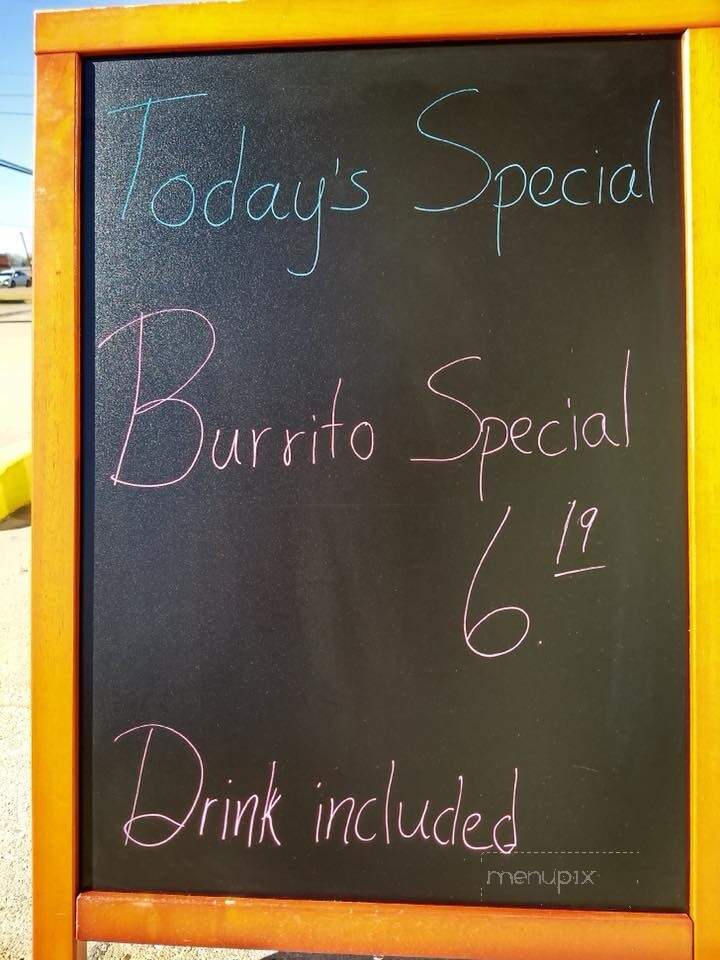 Today's Special
Burrito Special
6.19
Drink included
menupix